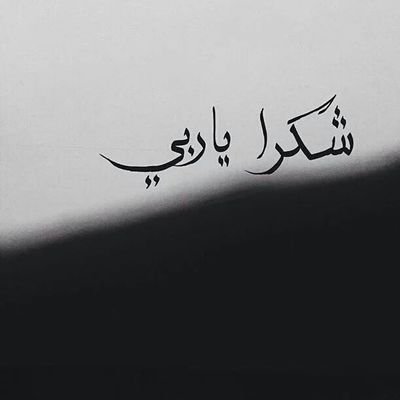 شكرا ياربي